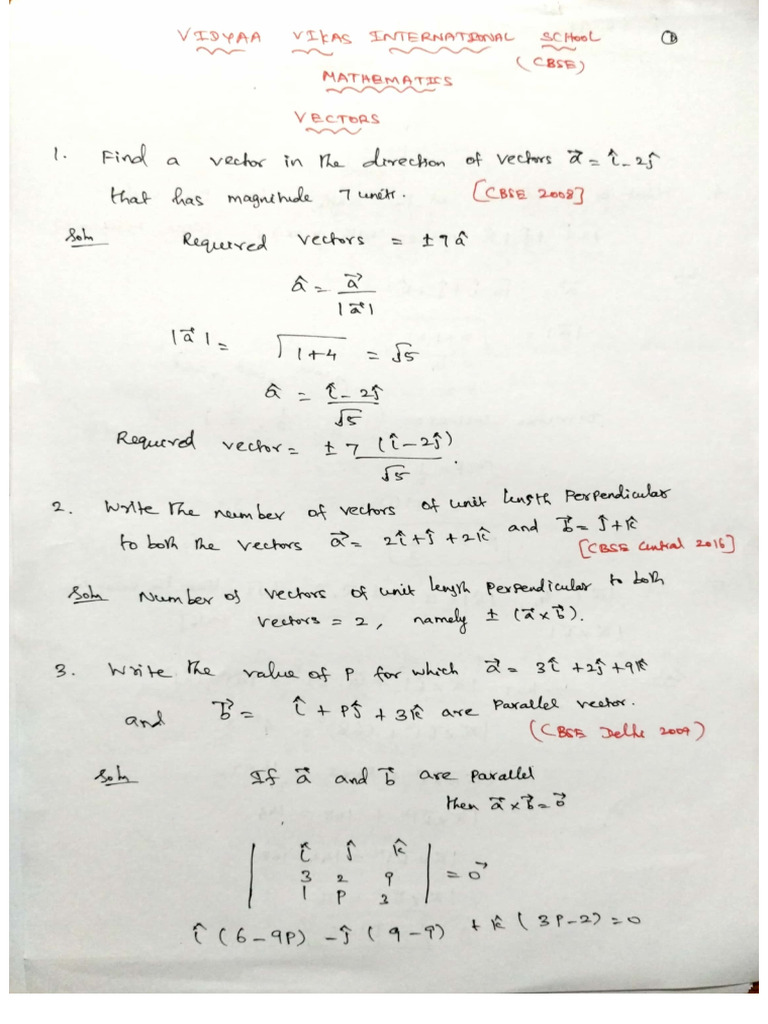 VIDYAA VIKAS INTERNATIONAL SCHOOL ①
(CBSE)
MATHEMATICS
VECTORS
1. Find a vector in the direction of vectors a⃗ = î - 2ĵ
that has magnitude 7 units. [CBSE 2008]
Soln Required vectors = ± 7 â
â = a⃗ / |a⃗|
|a⃗| = √(1+4) = √5
â = (î - 2ĵ) / √5
Required vector = ± 7 (î - 2ĵ) / √5.
2. Write the number of vectors of unit length Perpendicular
to both the vectors a⃗ = 2î + ĵ + 2k̂ and b⃗ = ĵ + k̂
[CBSE Central 2016]
Soln Number of vectors of unit length perpendicular to both
vectors = 2, namely ± (a⃗ × b⃗).
3. Write the value of P for which a⃗ = 3î + 2ĵ + 9k̂
and b⃗ = î + Pĵ + 3k̂ are Parallel vector.
(CBSE Delhi 2009)
Soln If a⃗ and b⃗ are parallel
then a⃗ × b⃗ = 0⃗
| î ĵ k̂ |
| 3 2 9 | = 0⃗
| 1 P 3 |
î (6 - 9P) - ĵ (9 - 9) + k̂ (3P - 2) = 0